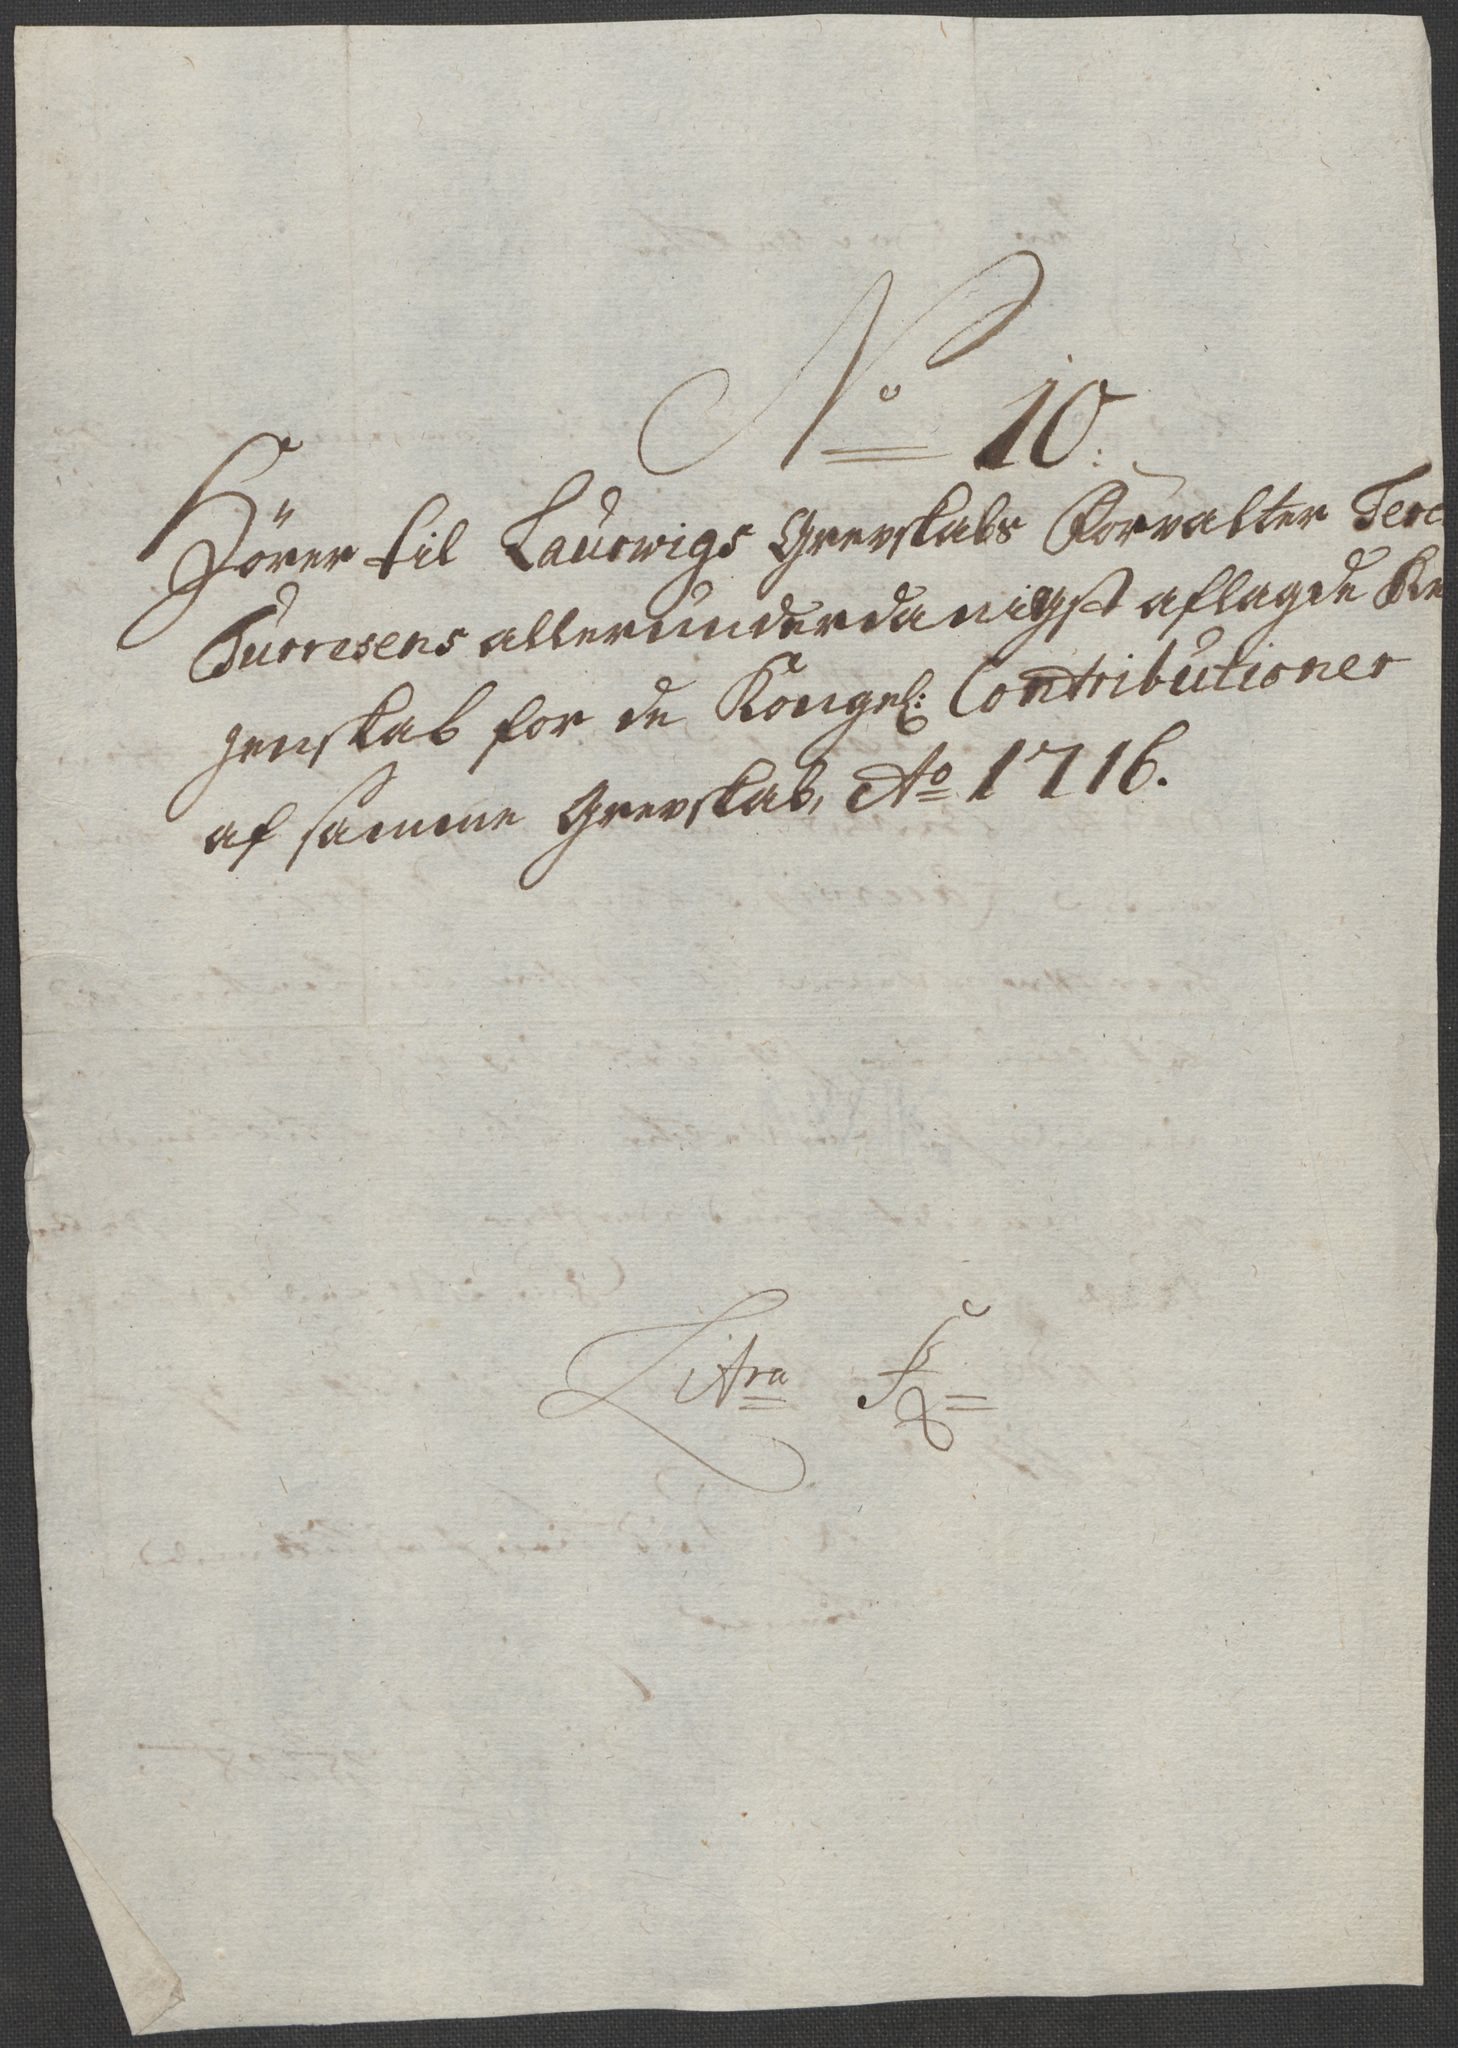 No 10:
Hörer til Laurwigs Grevskabs Forvalter
Turresens allerunderdanigst aflagde Re
genskab for de Kongel: Contributioner
af samme Grevskab, Ao 1716.
Litra F